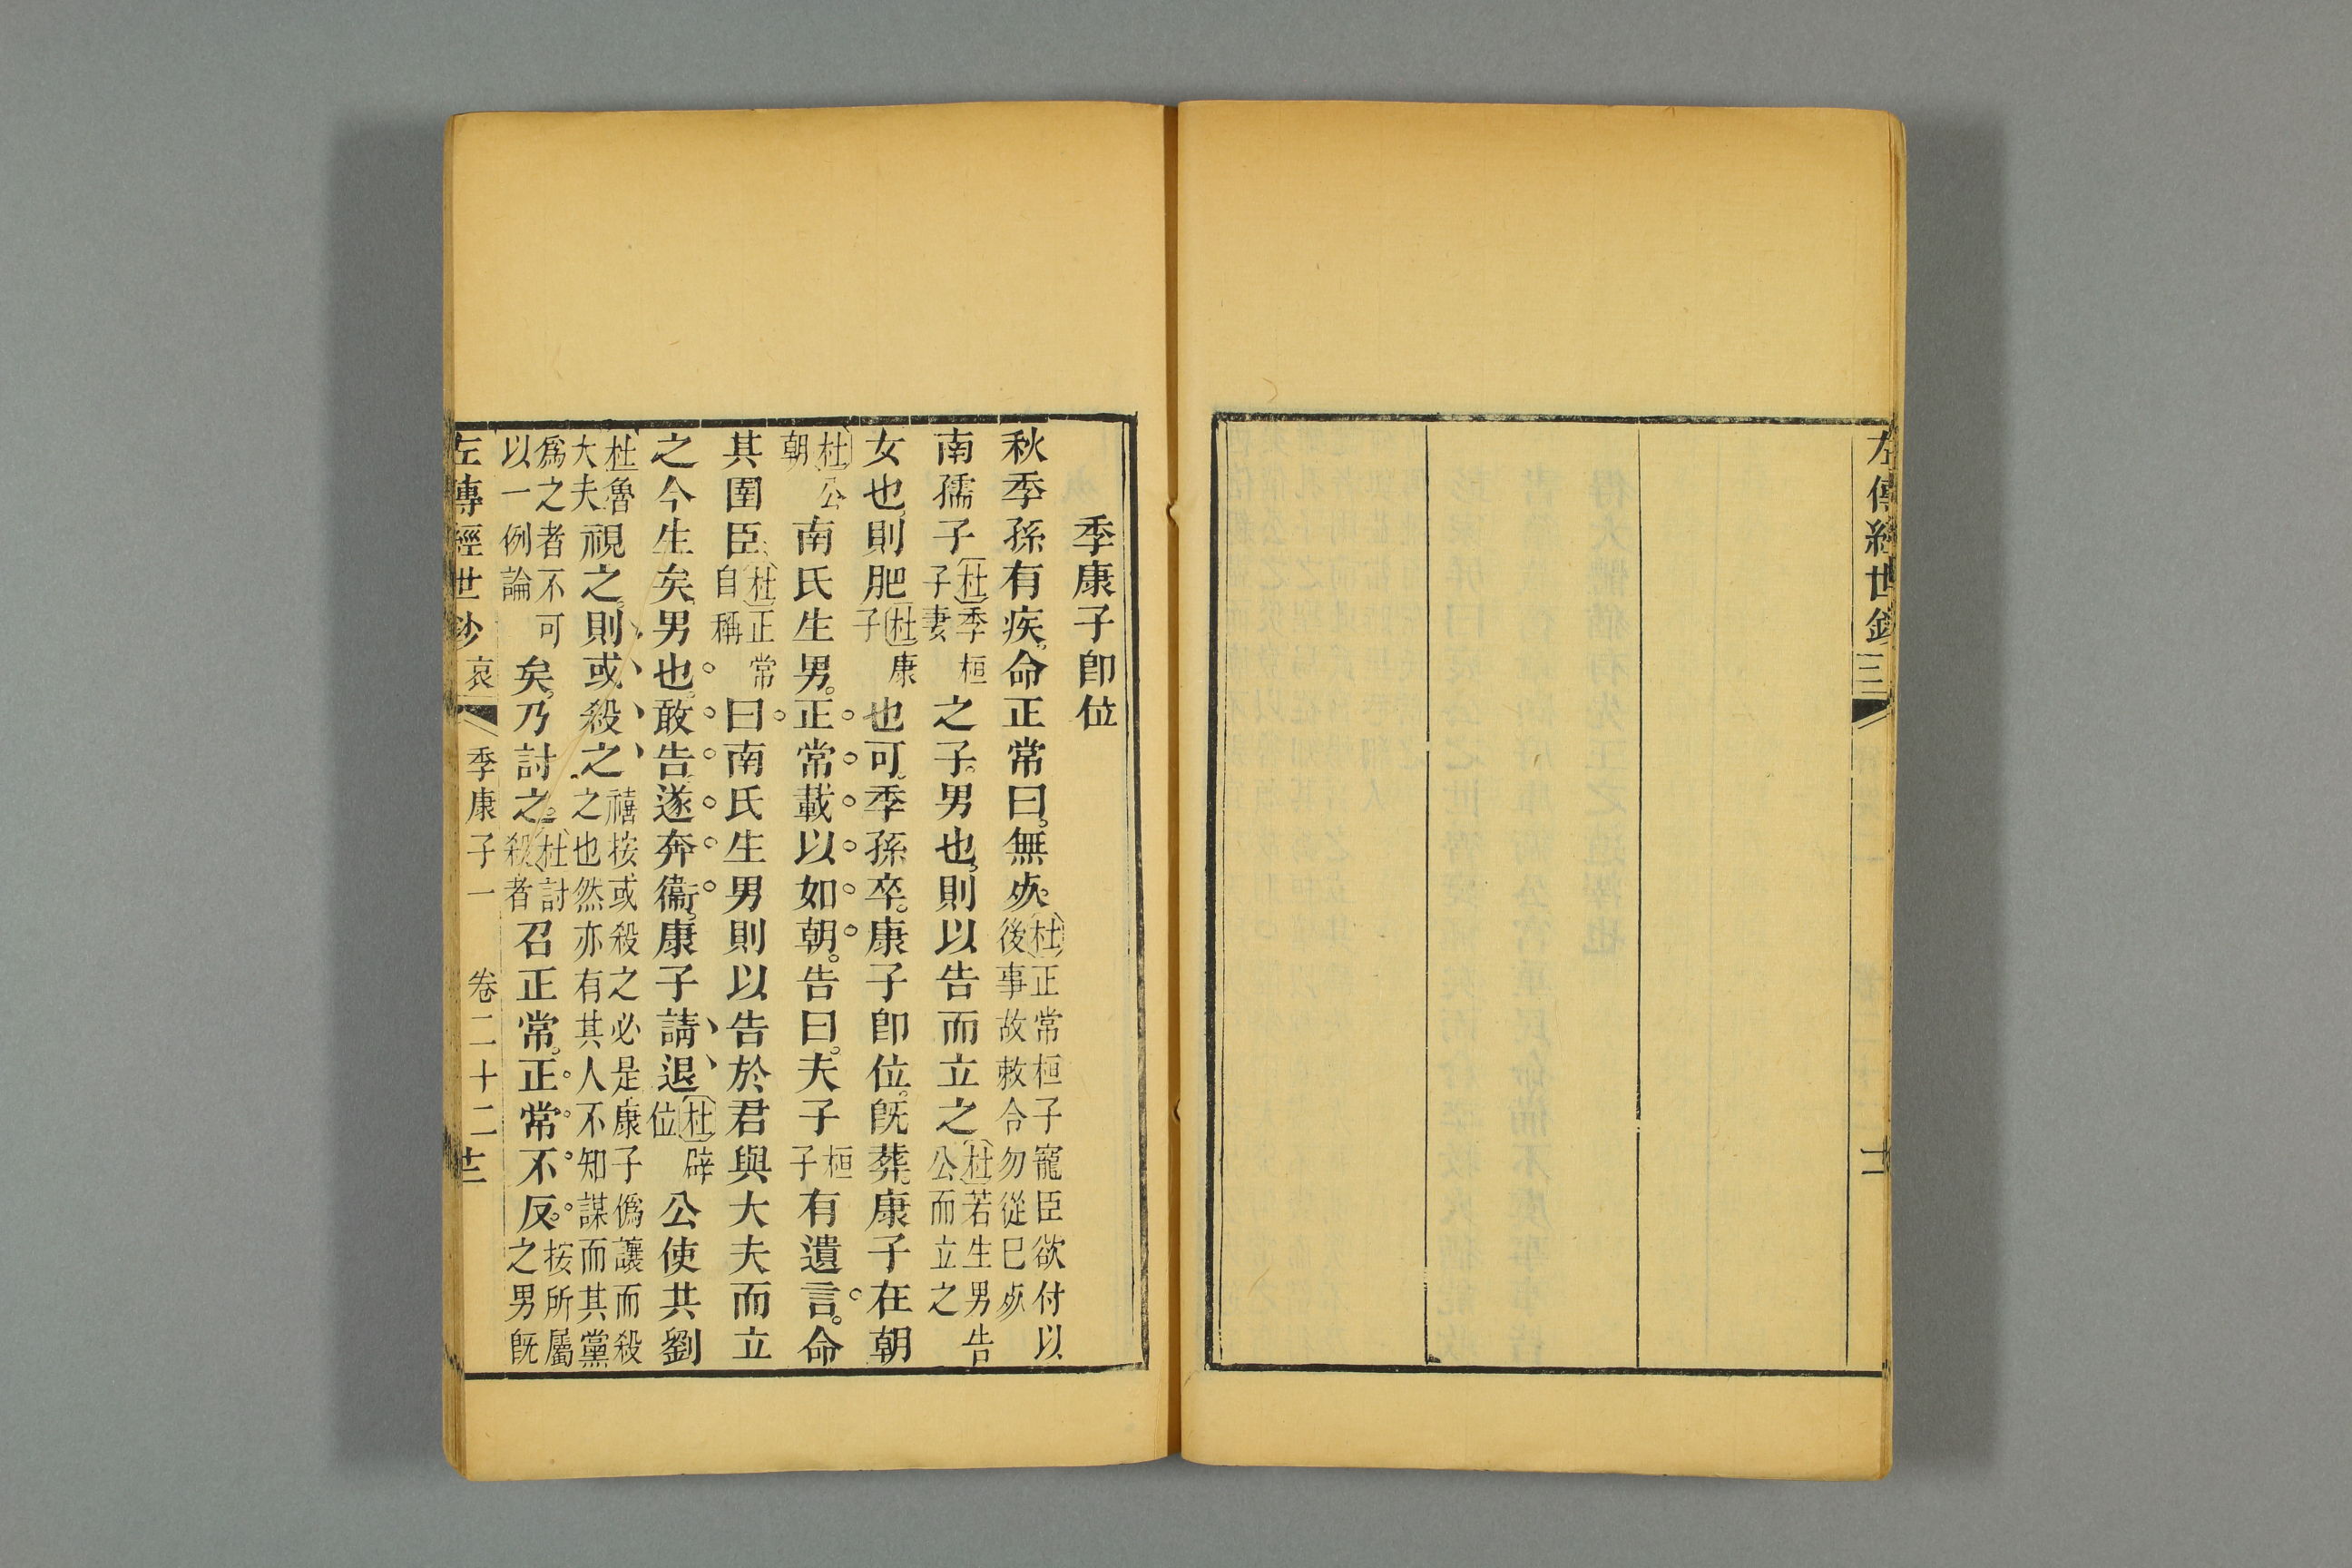 左傳經世鈔
三
十二
季康子卽位
秋季孫有疾命正常曰無死杜正常桓子寵臣欲付以後事故敕令勿從已死
南孺子杜季桓子妻之子男也則以告而立之杜若生男告公而立之
女也則肥杜康子也可季孫卒康子卽位旣葬康子在朝
杜公朝南氏生男正常載以如朝告曰夫子桓子有遺言命
其圉臣杜正常自稱曰南氏生男則以告於君與大夫而立
之今生矣男也敢告遂奔衞康子請退杜辟位公使共劉
杜魯大夫視之則或殺之禧按或殺之必是康子僞讓而殺之也然亦有其人不知謀而其黨
爲之者不可以一例論矣乃討之杜討殺者召正常正常不反按所屬之男旣
左傳經世鈔 哀 季康子一 卷二十二